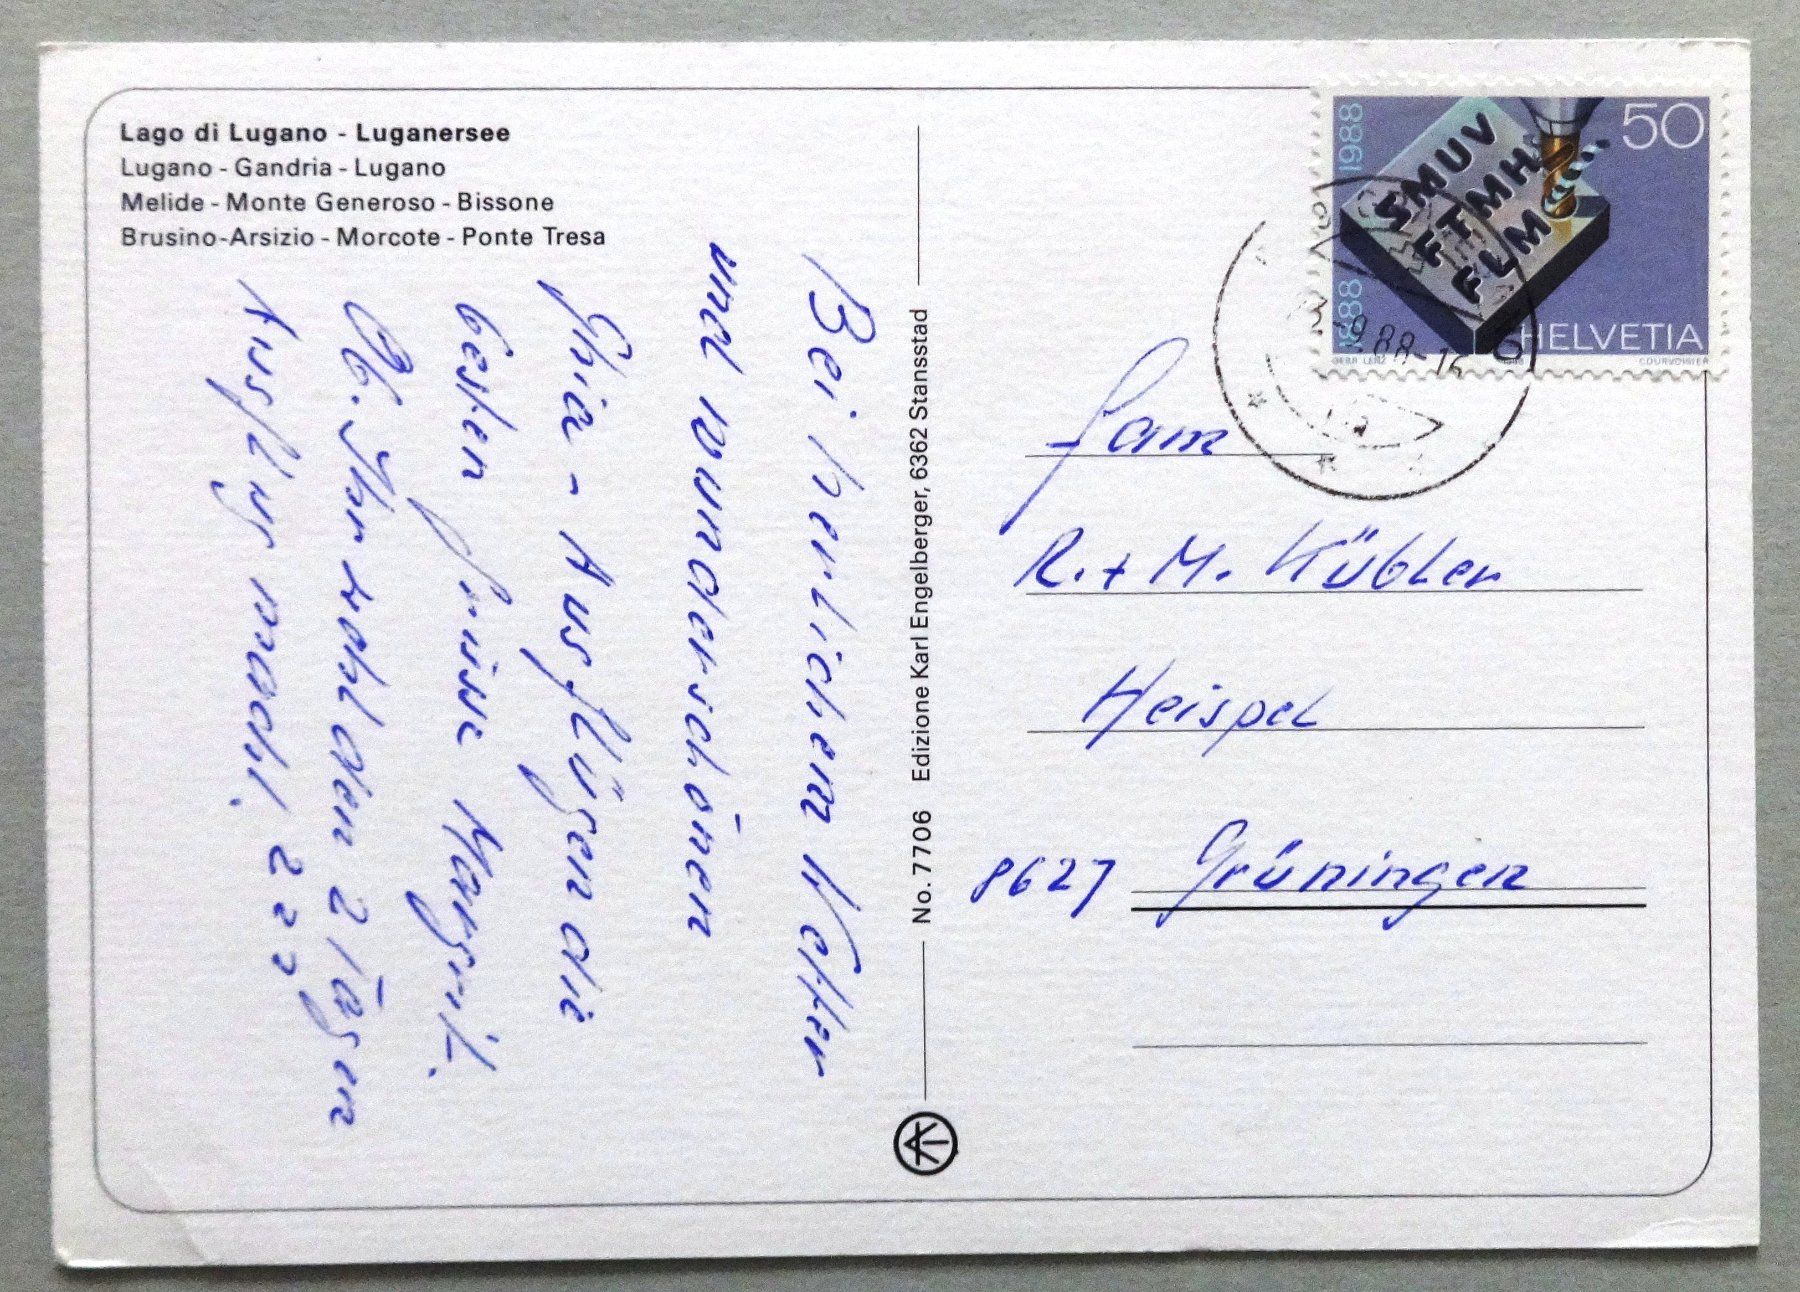 Lago di Lugano - Luganersee
Lugano - Gandria - Lugano
Melide - Monte Generoso - Bissone
Brusino-Arsizio - Morcote - Ponte Tresa
Bei herlichem Wetter
und wunderschönen
Ghia - Ausflügen die
besten Grüsse Margrit.
Ob Ihr wohl den 2 tägen
Ausflug macht. ???
No. 7706 Edizione Karl Engelberger, 6362 Stansstad
1888 1988
50
SMUV
FTMH
FLM
HELVETIA
COURVOISIER
9.88-16
Fam
R. + M. Kübler
Heispel
8627 Grüningen